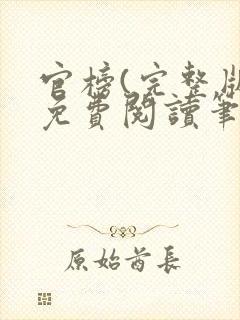 官榜(完整版
免費閱讀筆
原始酋長